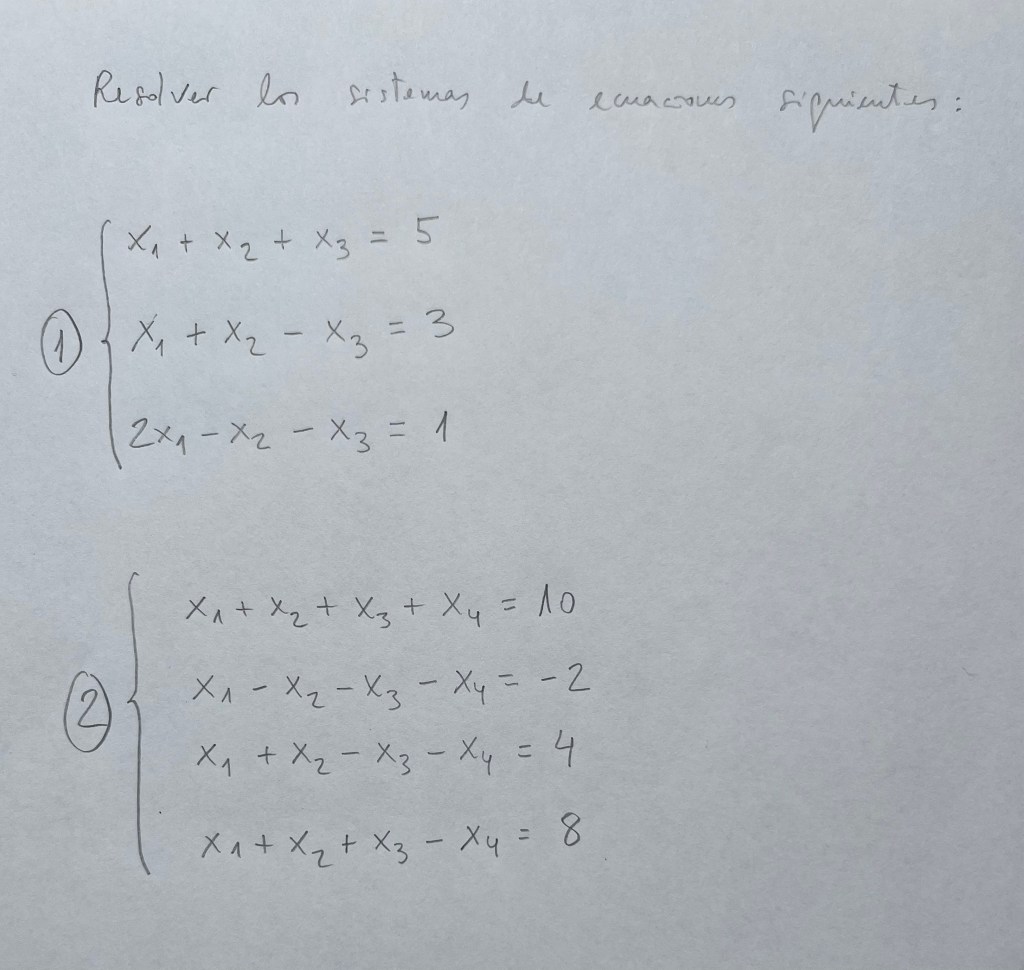 Resolver los sistemas de ecuaciones siguientes:
x₁ + x₂ + x₃ = 5
① x₁ + x₂ - x₃ = 3
2x₁ - x₂ - x₃ = 1
x₁ + x₂ + x₃ + x₄ = 10
x₁ - x₂ - x₃ - x₄ = -2
② x₁ + x₂ - x₃ - x₄ = 4
x₁ + x₂ + x₃ - x₄ = 8